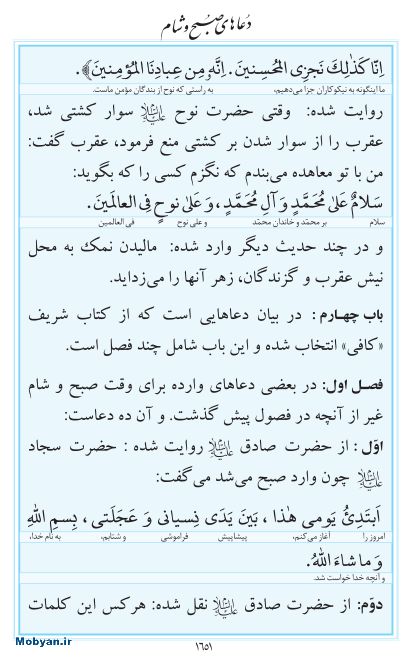 دُعاهای صبح و شام
اِنّا كَذٰلِكَ نَجزِی المُحسِنينَ. اِنَّهُ و مِن عِبادِنَا المُؤمِنينَ﴾.
ما اینگونه به نیکوکاران جزا می‌دهیم، به راستی که نوح از بندگان مؤمن ماست.
روایت شده: وقتی حضرت نوح علیه‌السلام سوار کشتی شد،
عقرب را از سوار شدن بر کشتی منع فرمود، عقرب گفت:
من با تو معاهده می‌بندم که نگزم کسی را که بگوید:
سَلامٌ عَلىٰ مُحَمَّدٍ وَ آلِ مُحَمَّدٍ، وَ عَلىٰ نوحٍ فِی العالَمينَ.
سلام بر محمّد و خاندان محمّد و علی نوح فی العالمین
و در چند حدیث دیگر وارد شده: مالیدن نمک به محل
نیش عقرب و گزندگان، زهر آنها را می‌زداید.
باب چهارم: در بیان دعاهایی است که از کتاب شریف
«کافی» انتخاب شده و این باب شامل چند فصل است.
فصل اول: در بعضی دعاهای وارده برای وقت صبح و شام
غیر از آنچه در فصول پیش گذشت. و آن ده دعاست:
اوّل: از حضرت صادق علیه‌السلام روایت شده: حضرت سجاد
علیه‌السلام چون وارد صبح می‌شد می‌گفت:
اَبتَدِئُ يَومی هٰذا، بَينَ يَدَی نِسيانی وَ عَجَلَتی، بِسمِ اللهِ
امروز را آغاز می‌کنم، پیشاپیش فراموشی و شتابم، به نام خدا،
وَ ما شاءَ اللهُ.
و آنچه خدا خواست شد.
دوّم: از حضرت صادق علیه‌السلام نقل شده: هرکس این کلمات
۱۶۵۱
Mobyan.ir